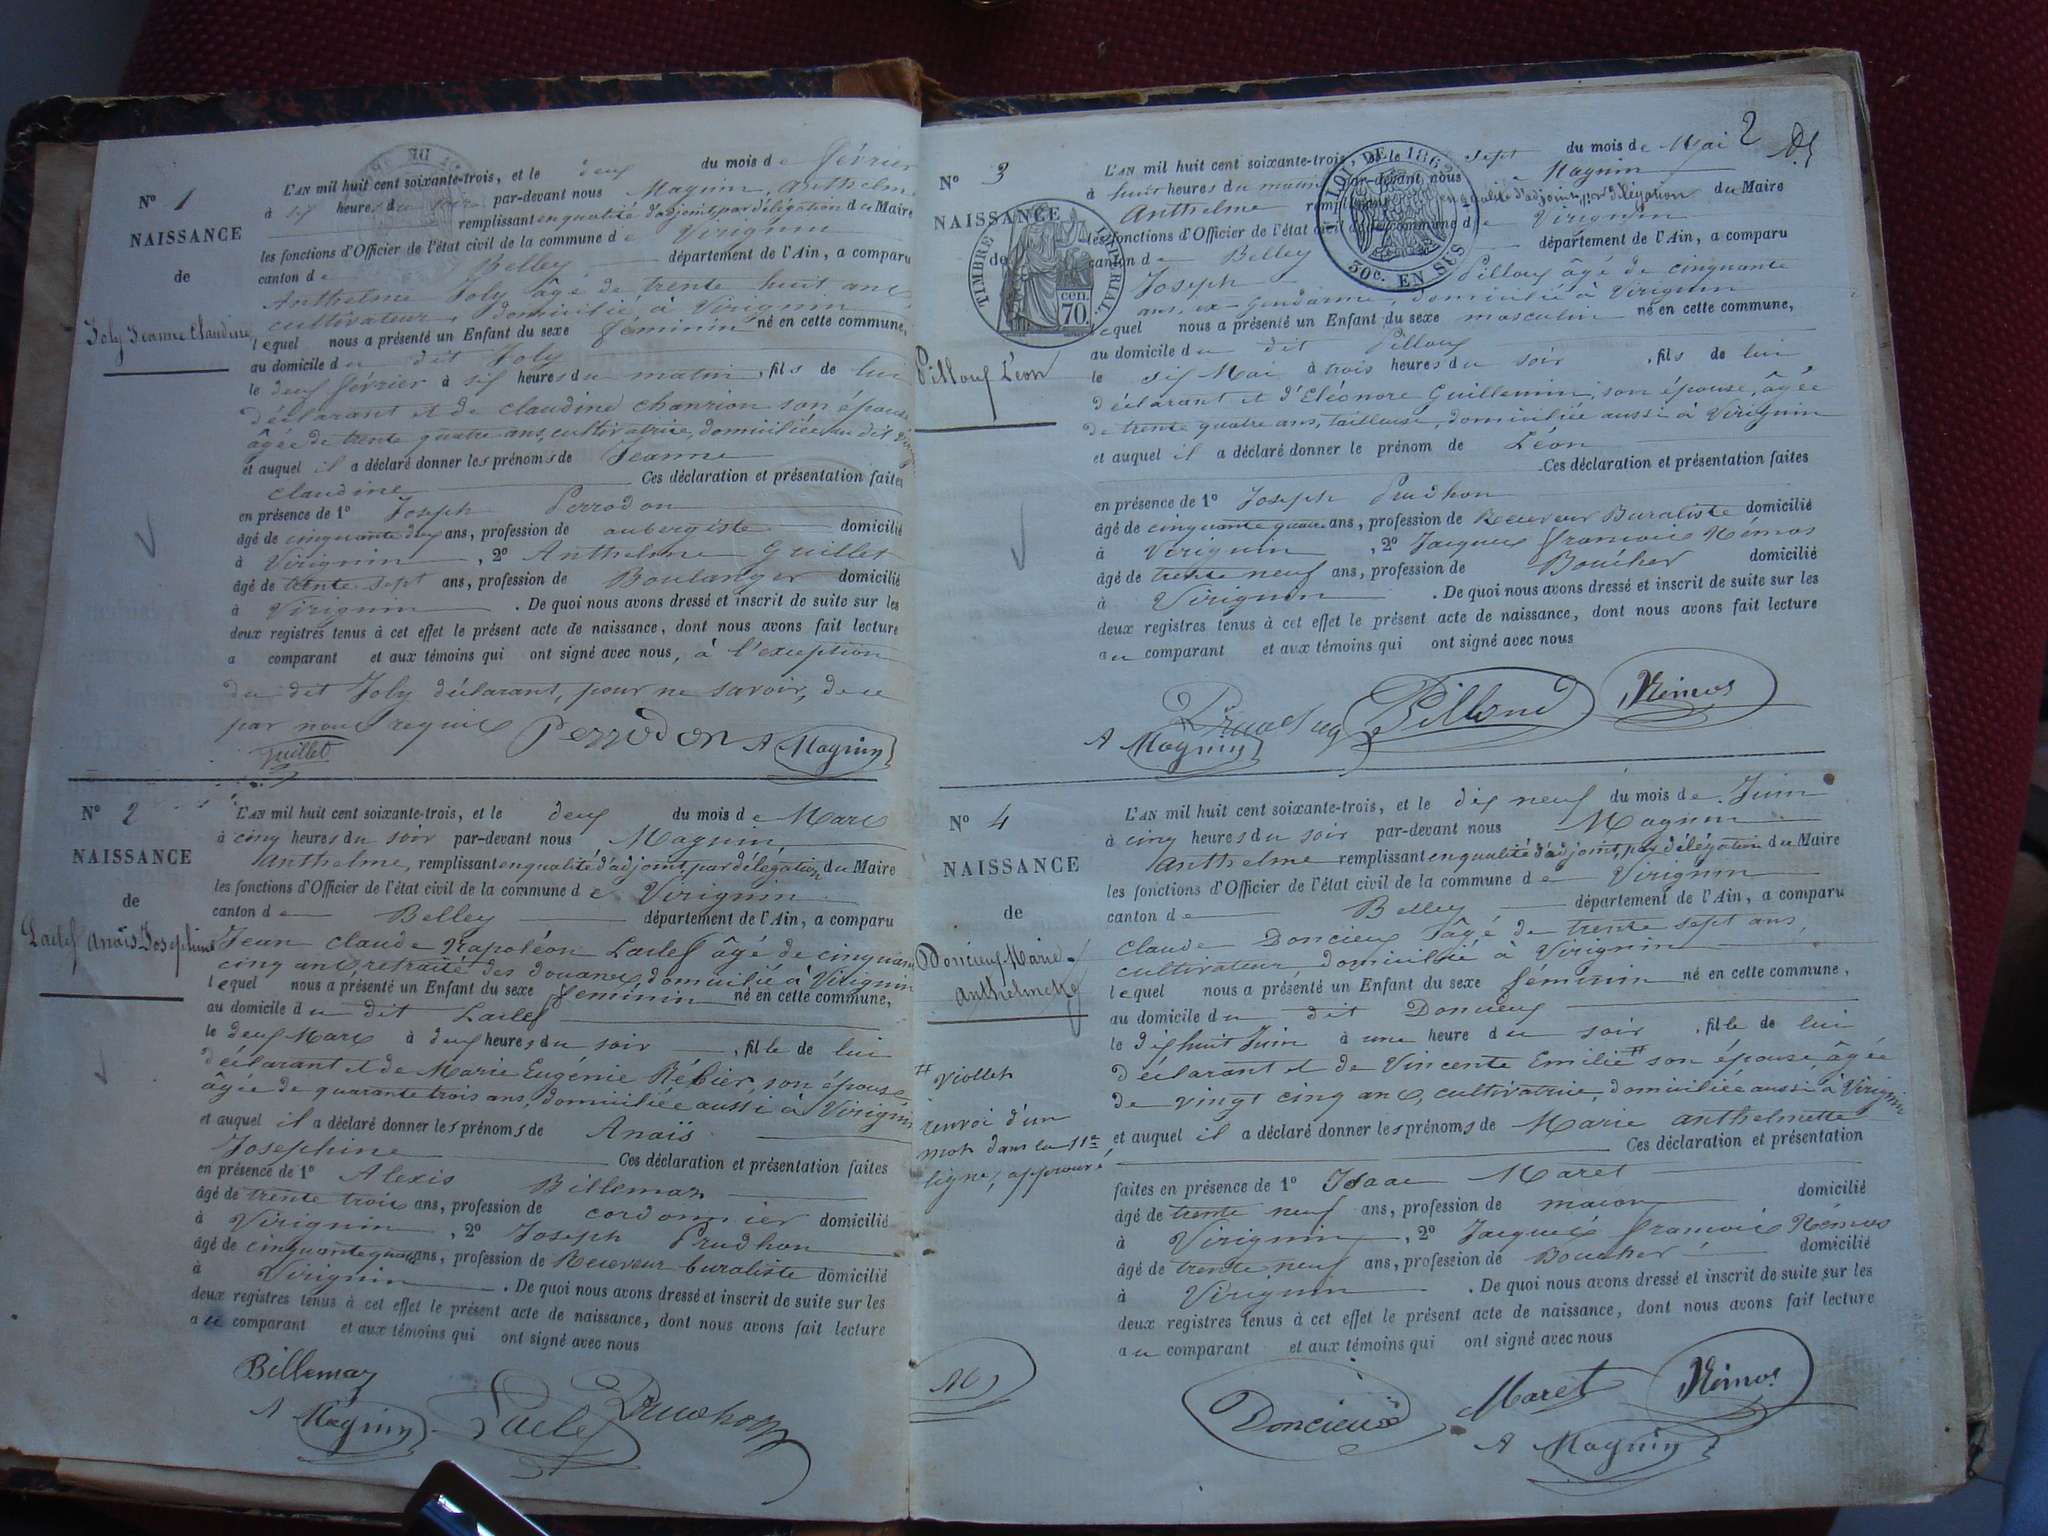 N° 1
NAISSANCE
de
Joly Jeanne Claudine
L'AN mil huit cent soixante-trois, et le deux du mois de février
à six heures du soir par-devant nous Magnin, Anthelme
remplissant en qualité d'adjoint, par délégation du Maire
les fonctions d'Officier de l'état civil de la commune de Virignin
canton de Belley département de l'Ain, a comparu
Anthelme Joly âgé de trente huit ans,
cultivateur, domicilié à Virignin
lequel nous a présenté un Enfant du sexe féminin né en cette commune,
au domicile du dit Joly
le deux février à six heures du matin, fils de lui
déclarant et de Claudine Chanrion son épouse
âgée de trente quatre ans, cultivatrice, domiciliée au dit
et auquel il a déclaré donner les prénoms de Jeanne
Claudine Ces déclaration et présentation faites
en présence de 1° Joseph Perrodon
âgé de cinquante deux ans, profession de aubergiste domicilié
à Virignin, 2° Anthelme Guillet
âgé de trente sept ans, profession de Boulanger domicilié
à Virignin. De quoi nous avons dressé et inscrit de suite sur les
deux registres tenus à cet effet le présent acte de naissance, dont nous avons fait lecture
a comparant et aux témoins qui ont signé avec nous, à l'exception
du dit Joly déclarant, pour ne savoir, de ce
par nous requis
Perrodon A Magnin
Guillet
N° 2
NAISSANCE
de
Laclef Anaïs Josephine
L'AN mil huit cent soixante-trois, et le deux du mois de Mars
à cinq heures du soir par-devant nous Magnin,
Anthelme, remplissant en qualité d'adjoint, par délégation du Maire
les fonctions d'Officier de l'état civil de la commune de Virignin
canton de Belley département de l'Ain, a comparu
Jean Claude Napoléon Laclef âgé de cinquante
cinq ans, retraité des douanes, domicilié à Virignin
lequel nous a présenté un Enfant du sexe féminin né en cette commune,
au domicile du dit Laclef
le deux Mars à deux heures du soir, fille de lui
déclarant et de Marie Eugénie Rébier, son épouse,
âgée de quarante trois ans, domiciliée aussi à Virignin
et auquel il a déclaré donner les prénoms de Anaïs
Josephine Ces déclaration et présentation faites
en présence de 1° Alexis Billemaz
âgé de trente trois ans, profession de cordonnier domicilié
à Virignin, 2° Joseph Prudhon
âgé de cinquante quatre ans, profession de Receveur buraliste domicilié
à Virignin. De quoi nous avons dressé et inscrit de suite sur les
deux registres tenus à cet effet le présent acte de naissance, dont nous avons fait lecture
au comparant et aux témoins qui ont signé avec nous
Billemaz
A Magnin Laclef Prudhon
2
N° 3
NAISSANCE
de
TIMBRE IMPÉRIAL
70 cen.
LOI DE 1862
50c. EN SUS
Pilloux Léon
L'AN mil huit cent soixante-trois, et le sept du mois de Mai
à huit heures du matin par-devant nous Magnin
Anthelme remplissant en qualité d'adjoint, par délégation du Maire
les fonctions d'Officier de l'état civil de la commune de Virignin
canton de Belley département de l'Ain, a comparu
Joseph Pilloux âgé de cinquante
ans, ex-gendarme, domicilié à Virignin
lequel nous a présenté un Enfant du sexe masculin né en cette commune,
au domicile du dit Pilloux
le six Mai à trois heures du soir, fils de lui
déclarant et d'Eléonore Guillemin, son épouse, âgée
de trente quatre ans, tailleuse, domiciliée aussi à Virignin
et auquel il a déclaré donner le prénom de Léon
Ces déclaration et présentation faites
en présence de 1° Joseph Prudhon
âgé de cinquante quatre ans, profession de Receveur Buraliste domicilié
à Virignin, 2° Jacques François Némos
âgé de trente neuf ans, profession de Boucher domicilié
à Virignin. De quoi nous avons dressé et inscrit de suite sur les
deux registres tenus à cet effet le présent acte de naissance, dont nous avons fait lecture
au comparant et aux témoins qui ont signé avec nous
Prudhon Pilloud Némos
A Magnin
N° 4
NAISSANCE
de
Doncieux Marie
Anthelmette
# Viollet
renvoi d'un
mot dans la 11e
ligne, approuvé
L'AN mil huit cent soixante-trois, et le dix neuf du mois de Juin
à cinq heures du soir par-devant nous Magnin
Anthelme remplissant en qualité d'adjoint, par délégation du Maire
les fonctions d'Officier de l'état civil de la commune de Virignin
canton de Belley département de l'Ain, a comparu
Claude Doncieux âgé de trente sept ans,
cultivateur, domicilié à Virignin
lequel nous a présenté un Enfant du sexe féminin né en cette commune,
au domicile du dit Doncieux
le dix huit Juin à une heure du soir, fille de lui
déclarant et de Vincente Emilie # son épouse âgée
de vingt cinq ans, cultivatrice, domiciliée aussi à Virignin
et auquel il a déclaré donner les prénoms de Marie Anthelmette
Ces déclaration et présentation
faites en présence de 1° Isaac Maret
âgé de trente neuf ans, profession de maçon domicilié
à Virignin, 2° Jacques François Némos
âgé de trente neuf ans, profession de Boucher domicilié
à Virignin. De quoi nous avons dressé et inscrit de suite sur les
deux registres tenus à cet effet le présent acte de naissance, dont nous avons fait lecture
au comparant et aux témoins qui ont signé avec nous
Doncieux Maret Némos
A Magnin